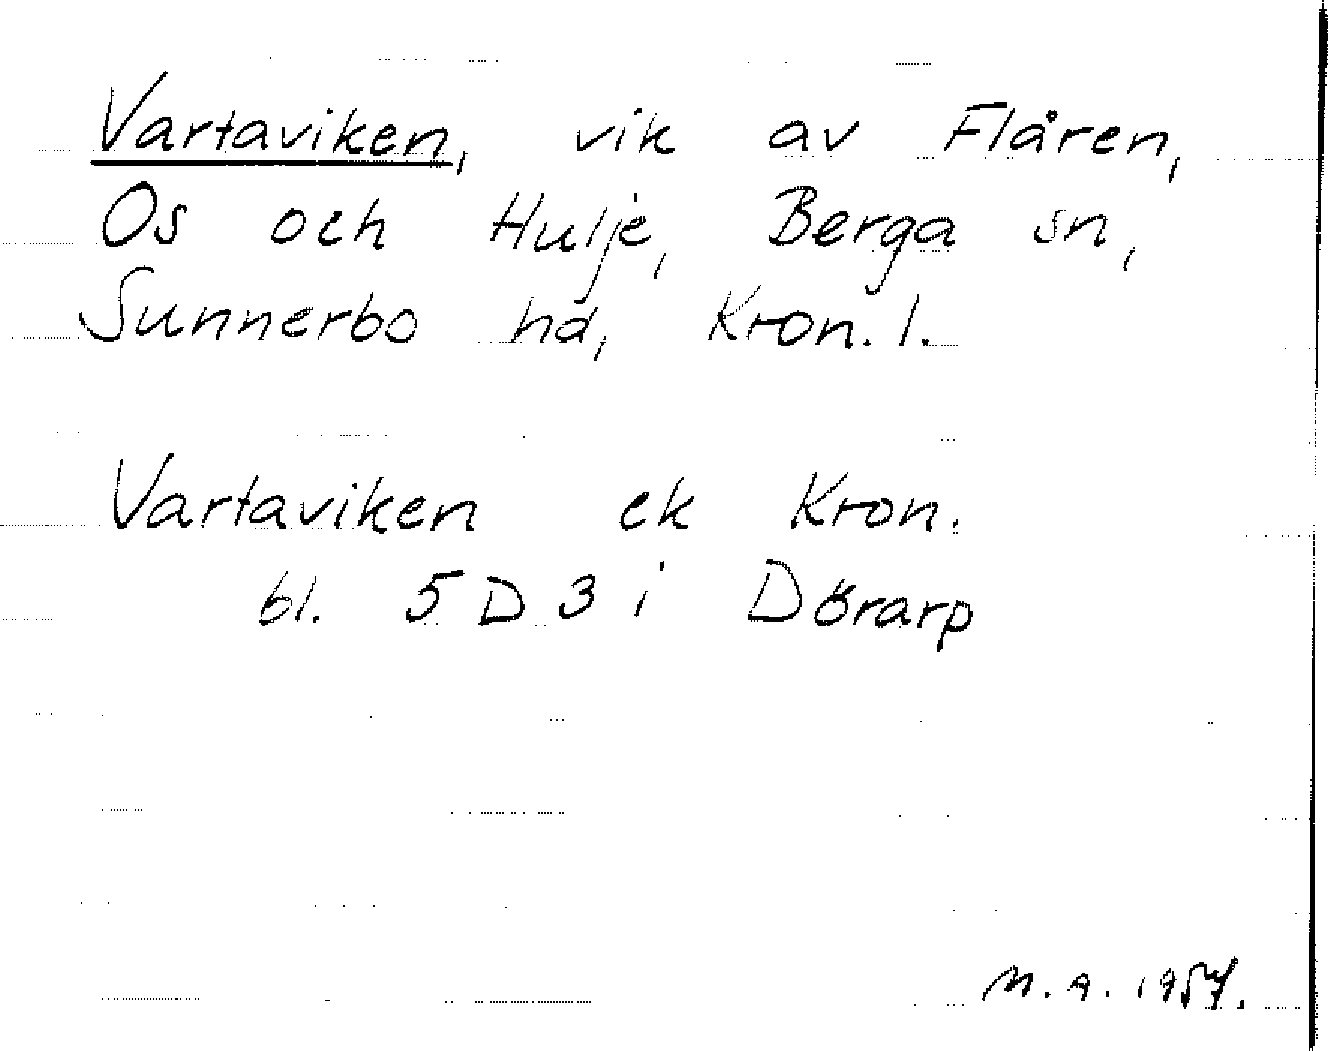 Vartaviken, vik av Flåren,
Os och Hulje, Berga sn,
Sunnerbo hd, Kron. l.
Vartaviken ek Kron.
bl. 5 D 3 i Dörarp
M. A. 1954.